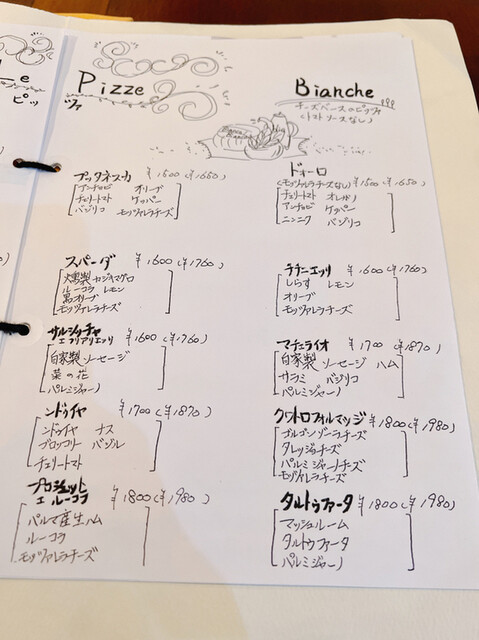 Pizze
ッツァ
Bianche
チーズベースのピッツァ
(トマトソースなし)
プッタネスカ ¥1500(¥1650)
アンチョビ オリーブ
チェリートマト ケッパー
バジリコ モッツァレラチーズ
スパーダ ¥1600(¥1760)
燻製カジキマグロ
ルーコラ レモン
黒オリーブ
モッツァレラチーズ
サルシッチャ
エフリアリエッリ ¥1600(¥1760)
自家製ソーセージ
菜の花
パルミジャーノ
ンドゥイヤ ¥1700(¥1870)
ンドゥイヤ ナス
ブロッコリー バジル
チェリートマト
プロシュット
エルーコラ ¥1800(¥1980)
パルマ産生ハム
ルーコラ
モッツァレラチーズ
ドォーロ
(モッツァレラチーズなし) ¥1500(¥1650)
チェリートマト オレガノ
アンチョビ ケッパー
ニンニク バジリコ
チチニエッリ ¥1600(¥1760)
しらす レモン
オリーブ
モッツァレラチーズ
マチェライオ ¥1700(¥1870)
自家製ソーセージ ハム
サラミ バジリコ
パルミジャーノ
クワトロフォルマッジ ¥1800(¥1980)
ゴルゴンゾーラチーズ
タレッジョチーズ
パルミジャーノチーズ
モッツァレラチーズ
タルトゥファータ ¥1800(¥1980)
マッシュルーム
タルトゥファータ
パルミジャーノ